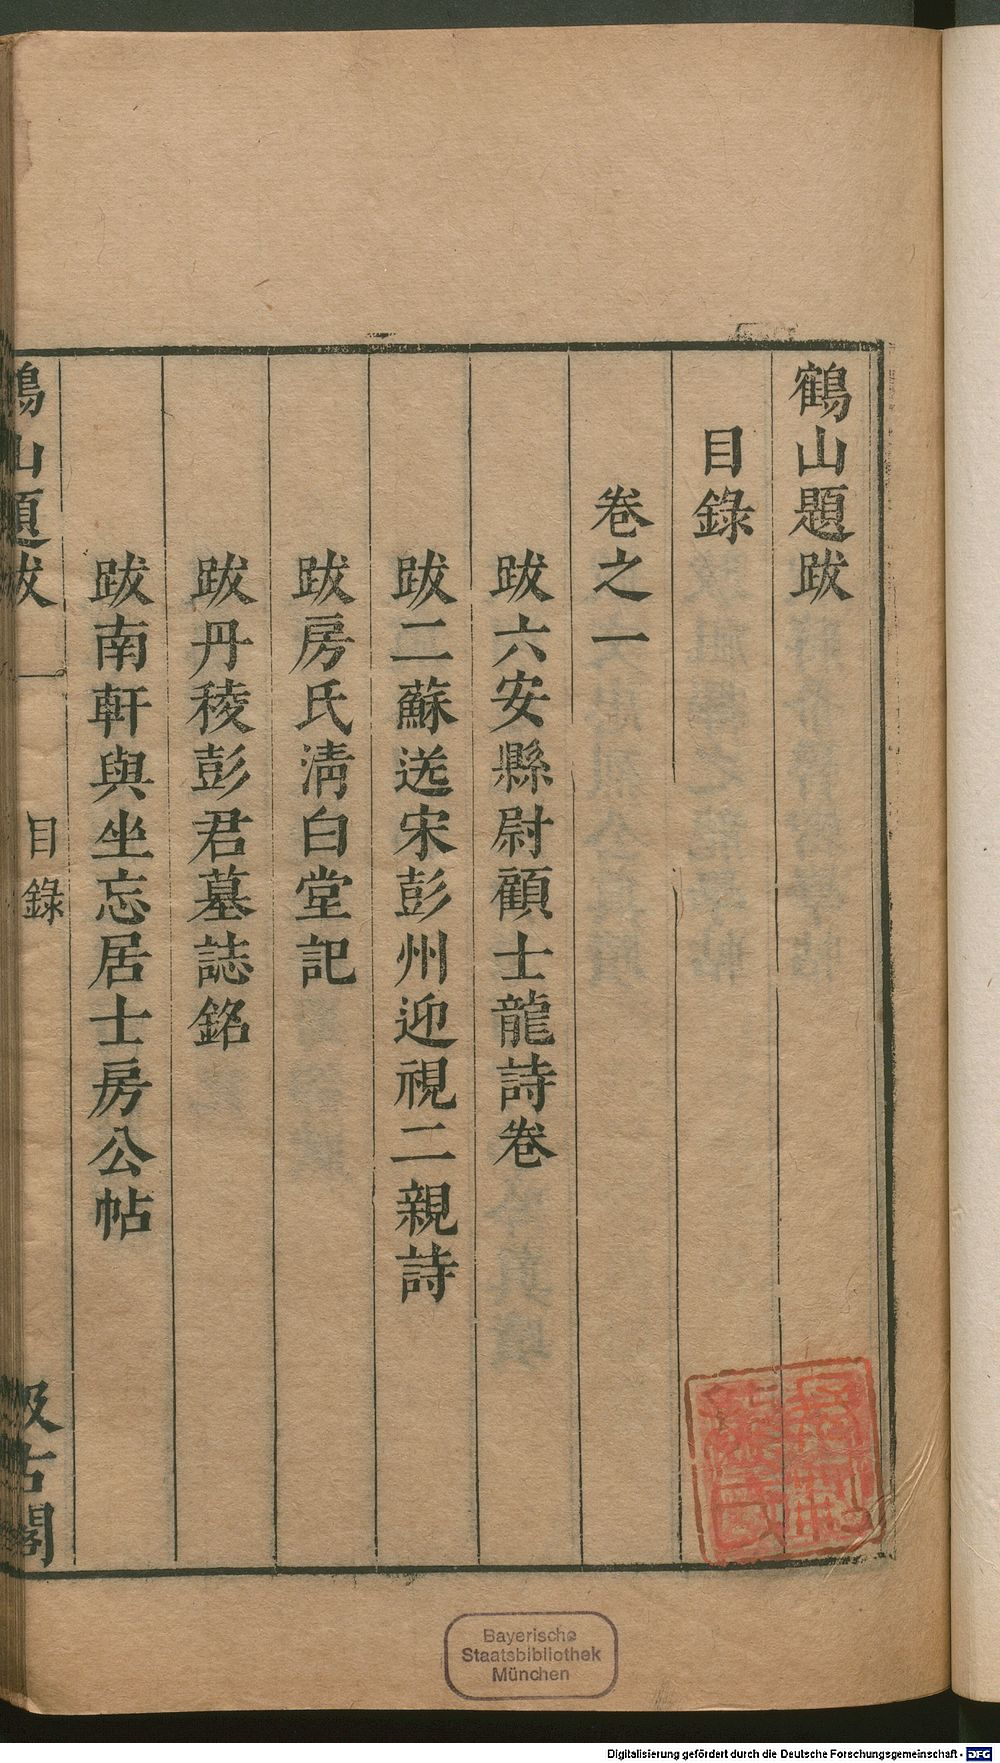 鶴山題跋
目錄
卷之一
跋六安縣尉顧士龍詩卷
跋二蘇送宋彭州迎視二親詩
跋房氏淸白堂記
跋丹稜彭君墓誌銘
跋南軒與坐忘居士房公帖
鶴山題跋 一 目錄 汲古閣
Bayerische
Staatsbibliothek
München
Digitalisierung gefördert durch die Deutsche Forschungsgemeinschaft - DFG